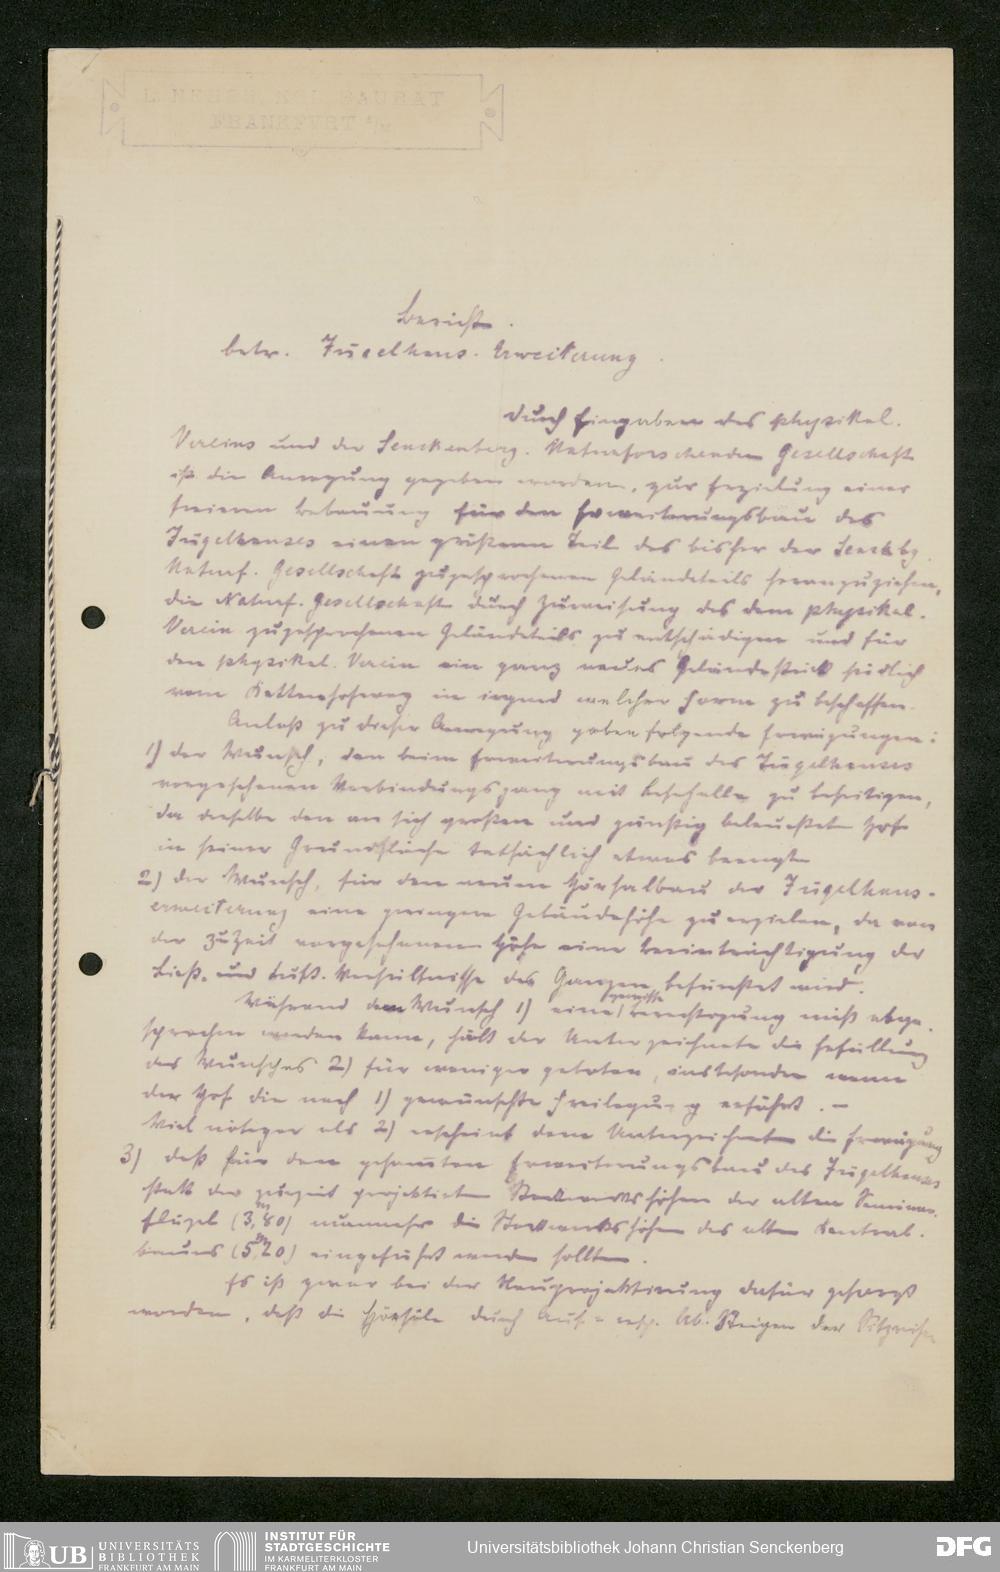 L. NEHER, KGL. BAURAT
FRANKFURT a/M
Bericht.
betr. Jügelhaus-Erweiterung.
Durch Eingaben des physikal.
Vereins und der Senckenberg. Naturforschenden Gesellschaft
ist die Anregung gegeben worden, zur Erzielung einer
freieren Bebauung für den Erweiterungsbau des
Jügelhauses einen größeren Teil des bisher der Senckbg.
Naturf. Gesellschaft zugesprochenen Geländeteils heranzuziehen,
die Naturf. Gesellschaft durch Zuweisung des dem physikal.
Verein zugesprochenen Geländeteils zu entschädigen und für
den physikal. Verein ein ganz neues Geländestück südlich
vom Kettenhofweg in irgend welcher Form zu beschaffen.
Anlaß zu dieser Anregung gaben folgende Erwägungen:
1) der Wunsch, den beim Erweiterungsbau des Jügelhauses
vorgesehenen Verbindungsgang mit zu beseitigen,
da derselbe den an sich großen und günstig beleuchteten Hof
in seiner Grundfläche tatsächlich etwas beengte
2) der Wunsch, für den neuen Hörsalbau der Jügelhaus-
erweiterung eine geringere Gebäudehöhe zu erzielen, da von
der zur Zeit vorgesehenen Höhe eine Beeinträchtigung der
Licht- und Luft-Verhältnisse des Ganzen befürchtet wird.
Während dem Wunsch 1) eine gewisse Berechtigung nicht abge-
sprochen werden kann, hält der Unterzeichnete die Erfüllung
des Wunsches 2) für weniger geboten, insbesondere wenn
der Hof die nach 1) gewünschte Freilegung erfährt. –
Viel nötiger als 2) erscheint dem Unterzeichneten die Erwägung
3) daß für den gesamten Erweiterungsbau des Jügelhauses
statt der zurzeit projektierten Stockwerkshöhen der alten Seminar-
flügel (3,80 m) nunmehr die Stockwerkshöhen des alten Central-
baues (5,20 m) eingeführt werden sollten.
Es ist zwar bei der Neuprojektierung dafür gesorgt
worden, daß die Hörsäle durch Auf- resp. Ab-Steigen der Sitzreihen
UB UNIVERSITÄTS
BIBLIOTHEK
FRANKFURT AM MAIN
INSTITUT FÜR
STADTGESCHICHTE
IM KARMELITERKLOSTER
FRANKFURT AM MAIN
Universitätsbibliothek Johann Christian Senckenberg
DFG